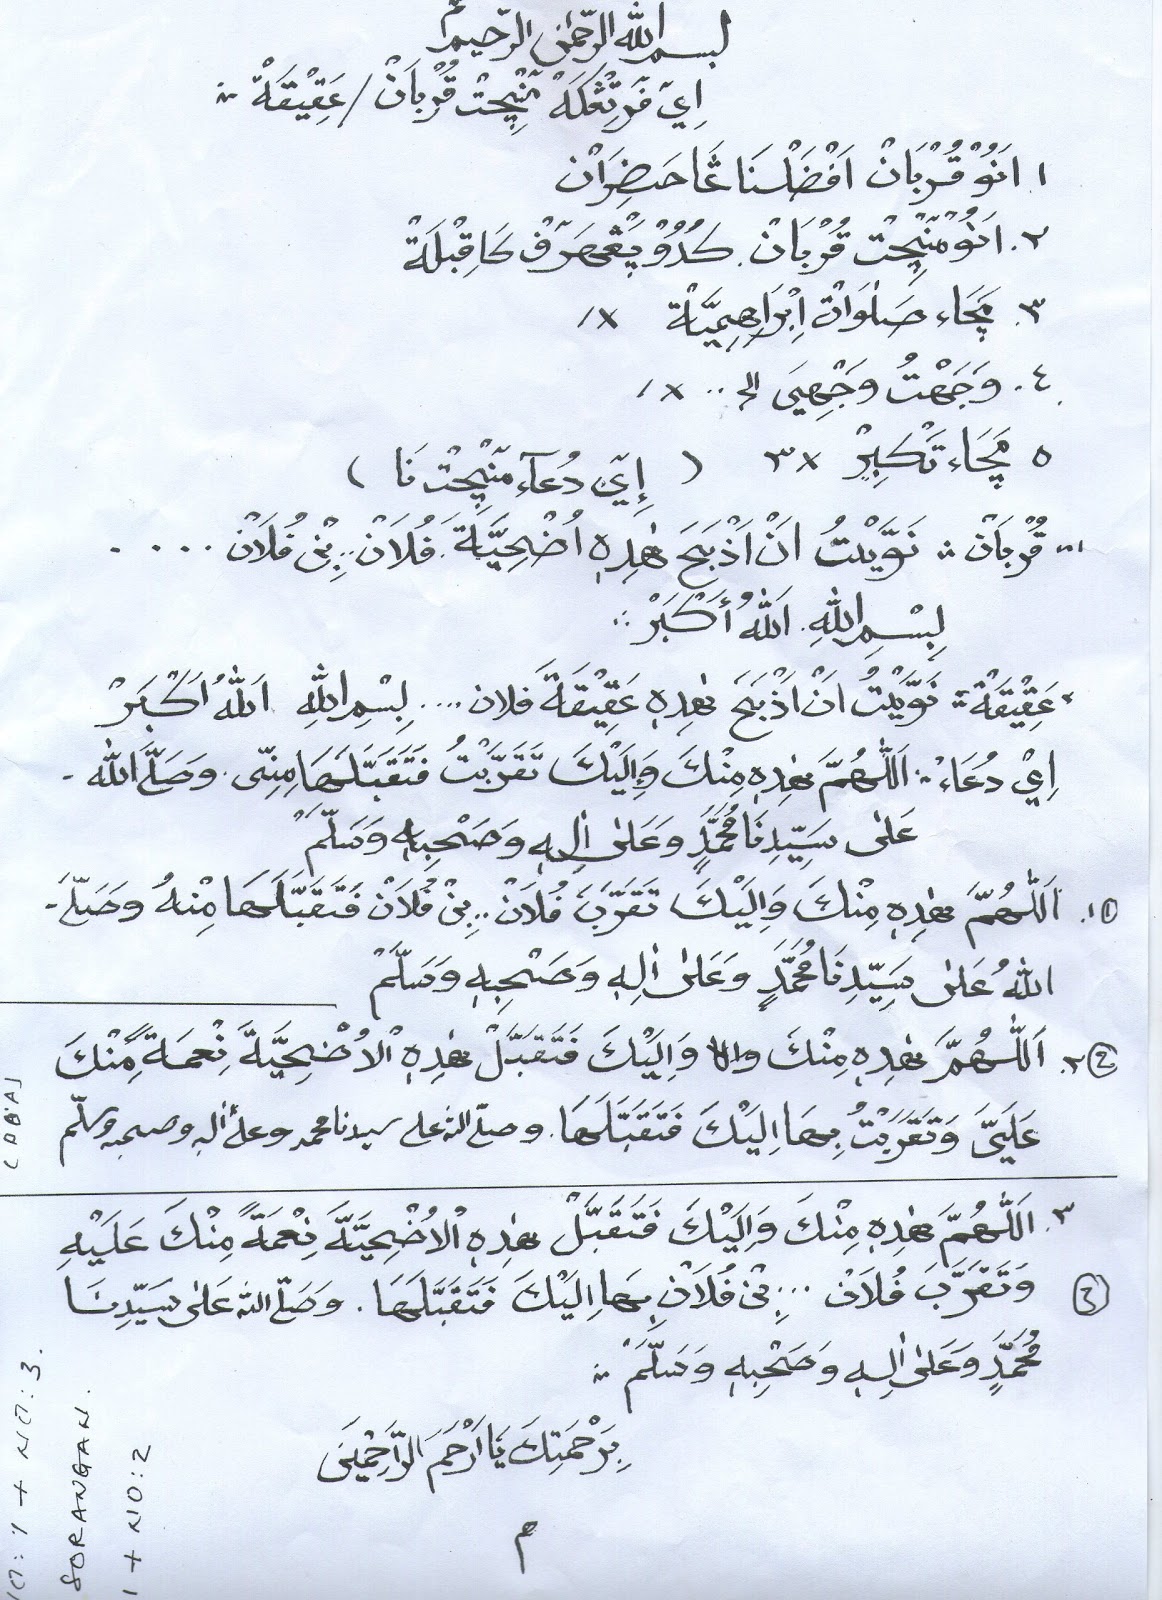 بسم الله الرحمن الرحيم
اِيَ فَرْتِڠْكَهْ مْنْبِيْحْت قُرْبَانْ / عَقِيْقَةْ
١. اَنُوْ قُرْبَانْ اَفْضَلْنَا ڠَاحَضِرَانْ
٢. اَنُوْ مْنْبِيْحْت قُرْبَانْ. كُدُوْ پَڠْهَرَفْ كَاقِبْلَةْ
٣. مَچَاء صَلَوَاتْ اِبْرَاهِمِيَّةْ ١x
٤. وَجَهْتُ وَجْهِيَ الى .. ١x
٥ مَچَاء تَكْبِيْرْ ٣x ( اِيَ دُعَآء مْنْبِيْحْت نَا )
قُرْبَانْ :: نَوَّيْتُ اَنْ اَذْبَحَ هٰذِهِ اُضْحِيَّةَ. فُلَانْ.. بِنْ فُلَانْ ....
بِسْمِ اللهِ. اَللهُ أَكْبَرْ
عَقِيْقَةْ :: نَوَّيْتُ اَنْ اَذْبَحَ هٰذِهِ عَقِيْقَةَ فلان .... بِسْمِ اللهِ اَللهُ اَكْبَرْ
اِيْ دُعَاءْ :: اَللّٰهُمَّ هٰذِهِ مِنْكَ وَاِلَيْكَ تَقَرَّبْتُ فَتَقَبَّلْهَا مِنِّى. وَصَلَّ الله -
عَلٰى سَيِّدِنَا مُحَمَّدٍ وَعَلٰى اٰلِهِ وَصَحْبِهِ وَسَلَّمْ
١. ① اَللّٰهُمَّ هٰذِهِ مِنْكَ وَاِلَيْكَ تَقَرَّبَ فُلَانْ .. بِنْ فُلَانْ فَتَقَبَّلْهَا مِنْهُ وَصَلَّ -
اللهُ عَلٰى سَيِّدِنَا مُحَمَّدٍ وَعَلٰى اٰلِهِ وَصَحْبِهِ وَسَلَّمْ
٢. ② اَللّٰهُمَّ هٰذِهِ مِنْكَ وَاِلَيْكَ فَتَقَبَّلْ هٰذِهِ الْاُضْحِيَّةَ نِعْمَةً مِنْكَ
عَلَيَّ وَتَقَرَبْتُ بِهَا اِلَيْكَ فَتَقَبَّلْهَا. وصلّى الله على سيدنا محمد وعلى اٰله وصحبه وسلّم
٣. اَللّٰهُمَّ هٰذِهِ مِنْكَ وَاِلَيْكَ فَتَقَبَّلْ هٰذِهِ الْاُضْحِيَّةَ نِعْمَةً مِنْكَ عَلَيْهِ
③ وَتَقَرَّبَ فُلَانْ ... بِنْ فُلَانْ بِهَا اِلَيْكَ فَتَقَبَّلْهَا. وَصَلَّى الله عَلٰى سَيِّدِنَا
مُحَمَّدٍ وَعَلٰى اٰلِهِ وَصَحْبِهِ وَسَلَّمْ
بِرَحْمَتِكَ يَا اَرْحَمَ الرَّاحِمِيْنَ
م
NO: 1 + NO: 3.
SORANGAN.
1 + NO: 2